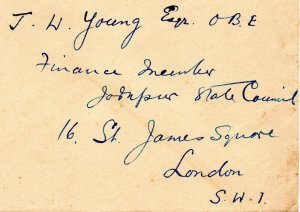 J. W. Young Esqr. O.B.E
Finance Member
Jodhpur State Council
16. St. James Square
London
S.W.1.